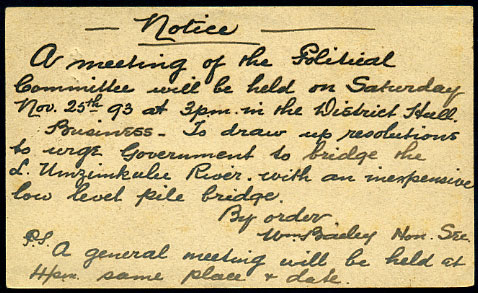 Notice
A meeting of the Political
Committee will be held on Saturday
Nov. 25th 93 at 3pm. in the District Hall.
Business - To draw up resolutions
to urge Government to bridge the
L. Umzimkulu River. with an inexpensive
low level pile bridge.
By order
Wm Bailey Hon. Sec.
P.S. A general meeting will be held at
4pm. same place & date.